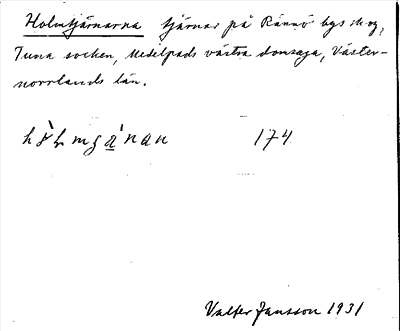 Holmtjärnarna tjärnar på Rännö bys skog,
Tuna socken, Medelpads västra domsaga, Väster-
norrlands län.
174
Valter Jansson 1931